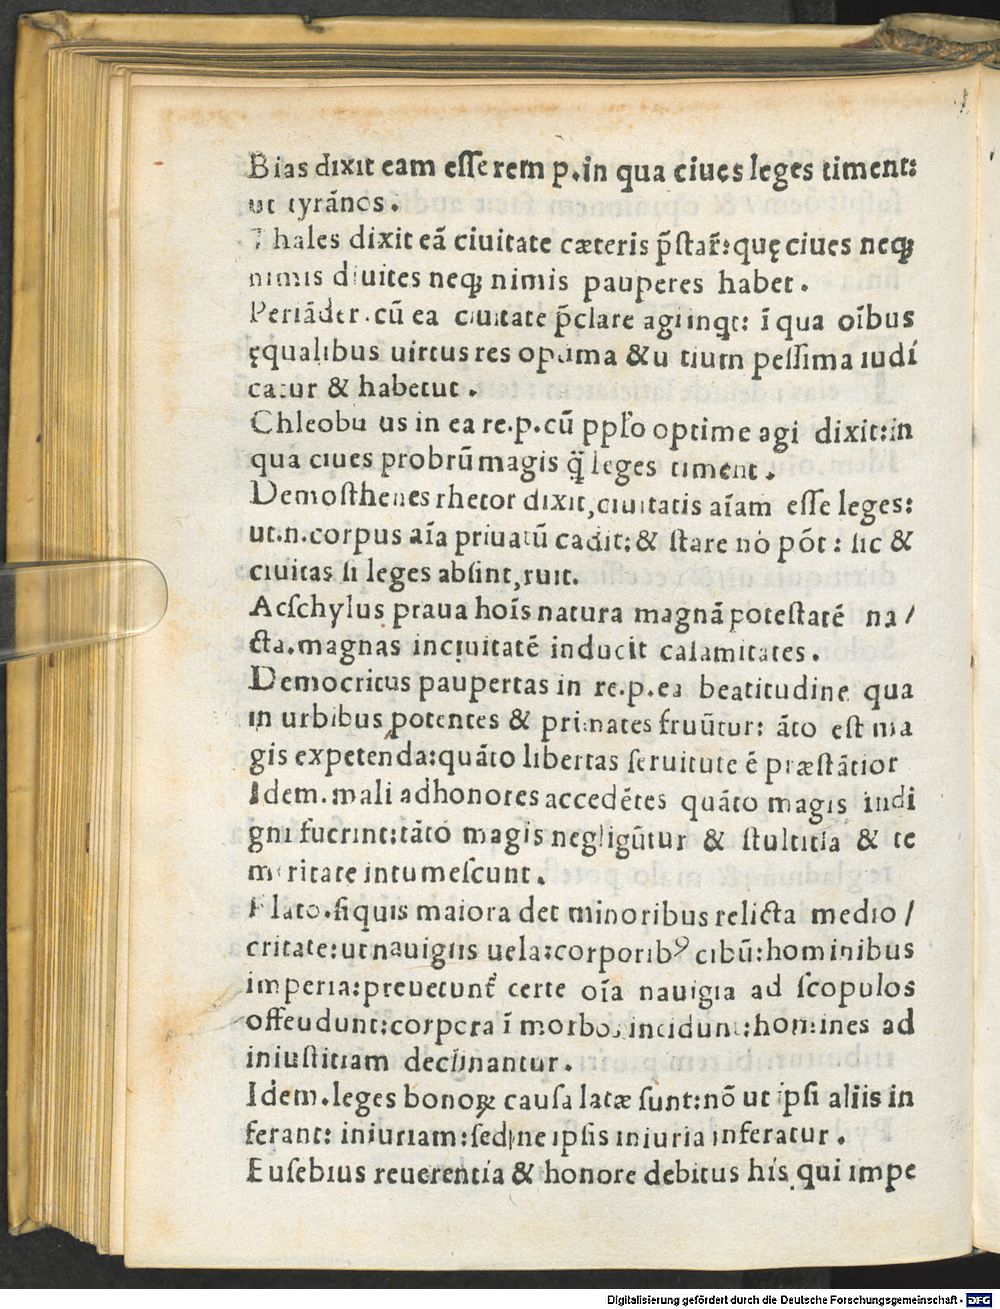 Bias dixit eam eſſe rem p.in qua ciues leges timent:
ut tyrãnos.
Thales dixit eã ciuitatē cæteris p̃ſtar̃:quę ciues neqꝫ
nimis diuites neqꝫ nimis pauperes habet.
Periãder.cũ ea ciuitate p̃clare agi inqt: ĩ qua oĩbus
ęqualibus uirtus res optima &u tium peſſima iudí
catur & habetut.
Chleobu us in ea re.p.cũ pplo optime agi dixit:in
qua ciues probrũ magis q̃ leges timent.
Demoſthenes rhetor dixit,ciuitatis aĩam eſſe leges:
ut.n.corpus aĩa priuatũ cadit:& ſtare nõ põt: ſic &
ciuitas ſi leges abſint,ruit.
Aeſchylus praua hoĩs natura magnã poteſtatẽ na/
cta.magnas in ciuitatẽ inducit calamitates.
Democritus paupertas in re.p.ea beatitudine qua
in urbibus potentes & primates fruũtur: ãto eſt ma
gis expetenda:quãto libertas ſeruitute ẽ præſtãtior
Idem.mali ad honores accedẽtes quãto magis indi
gni fuerint:tãto magis negligũtur & ſtultitia & te
meritate intumeſcunt.
Plato.ſiquis maiora det minoribus relicta medio/
critate:ut nauigiis uela:corporibꝰ cibũ:hominibus
imperia:preuetunt̃ certe oĩa nauigia ad ſcopulos
offeudunt:corpora ĩ morbos incidunt:homines ad
iniuſtitiam declinantur.
Idem.leges bonoꝝ cauſa latæ ſunt:nõ ut ipſi aliis in
ferant: iniuriam:ſed ne ipſis iniuria inferatur.
Euſebius reuerentia & honore debitus his qui impe
Digitalisierung gefördert durch die Deutsche Forschungsgemeinschaft - DFG